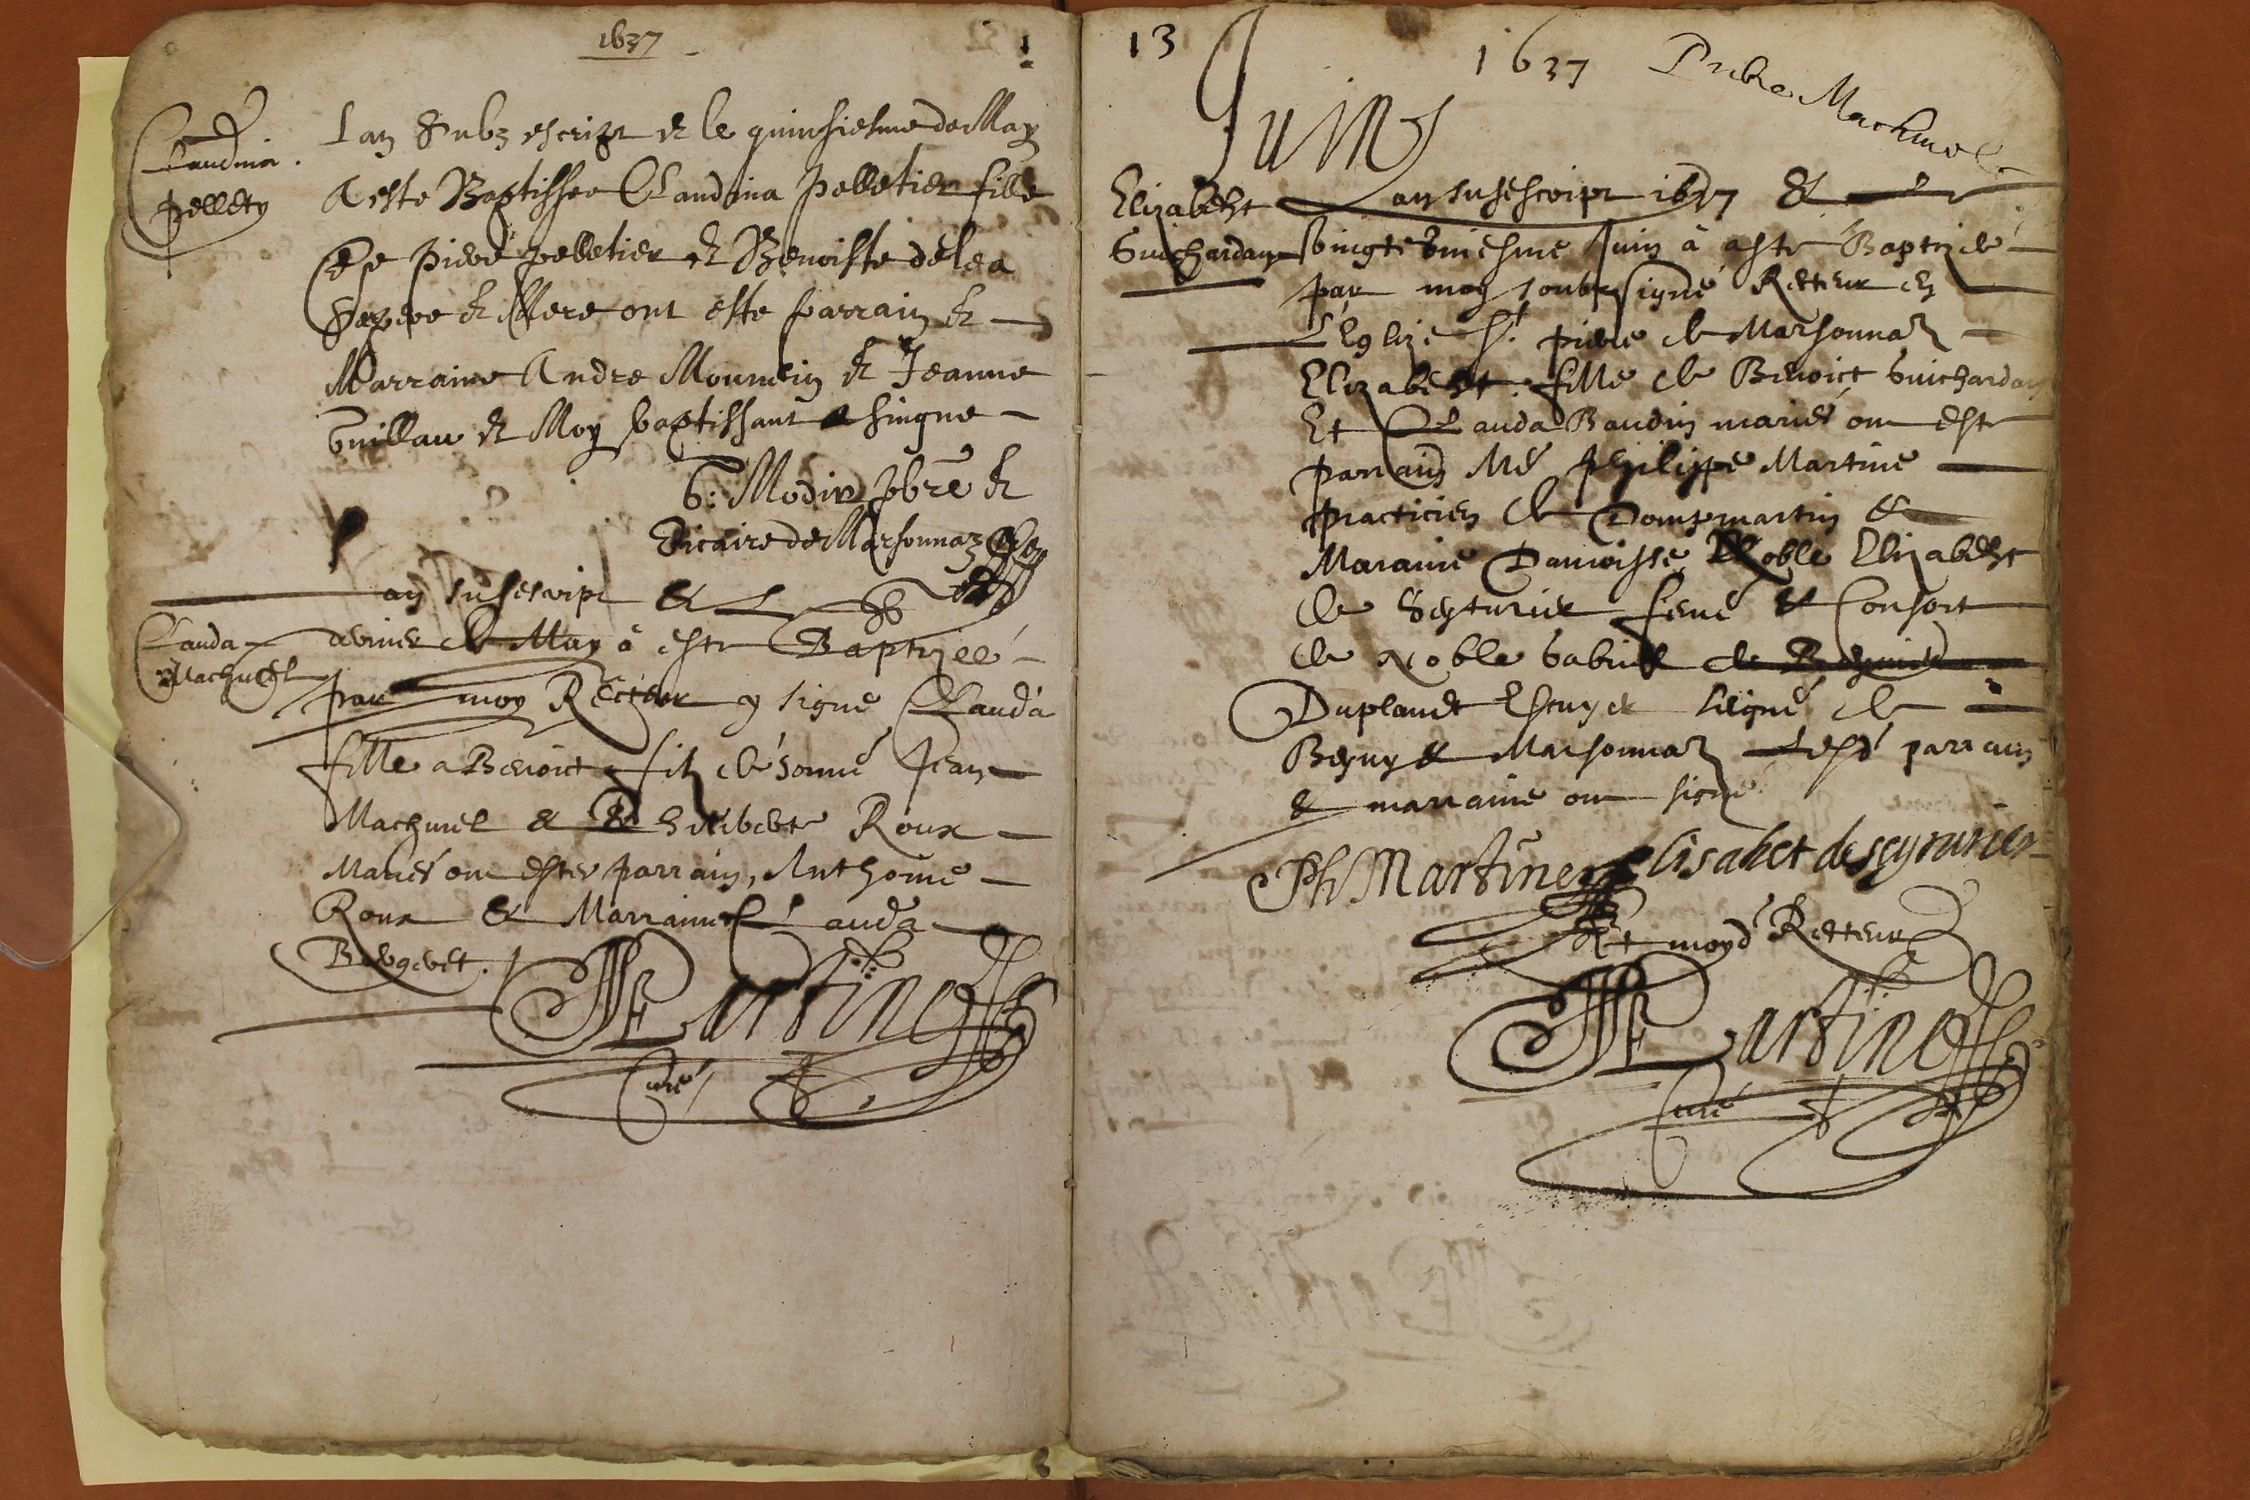 1637
Claudina
Pellety
Lan Subz escript et le quinsiesme de May
A este Baptissee Claudina Pelletier fille
De Piere pelletier et Benoiste
Pere et Mere ont este parrain et
Marraine Andre et Jeanne
et Moy baptissant signe
G: Modin pbre et
Vicaire de Marsonnaz
Lan susescript &
Clauda
Machurel
dernier de May à esté Baptizeé
par moy Recteur signé Clauda
fille a Benoict filz de Jean
Machurel & Philiberte Roux
Mariés ont estes parrain, Anthoine
Roux & Marraine Clauda
Bergeret.
Martine
Curé
13
1637
Machurel
Juin
Elizabeht
Guichardan
Lan susescript 1637 & Le
vingt Juin à esté Baptizeé
par moy soubsigné Retteur en
L'Eglize St. piere de Marsonnaz
Elizabeht fille de Benoict Guichardan
Et Clauda Baudin mariés ont esté
parrain Me philippe Martine
practicien de Dompmartin &
Maraine Damoisse Noble Elizabeht
de Seyturier feme & Consort
de Noble Gabriel
Duplanet Escuyer seigne de
& Marsonnaz Lesd parrain
& marraine ont signé
Ph Martine Elisabet de seyturier
Et moyd Retteur
Martine
Curé